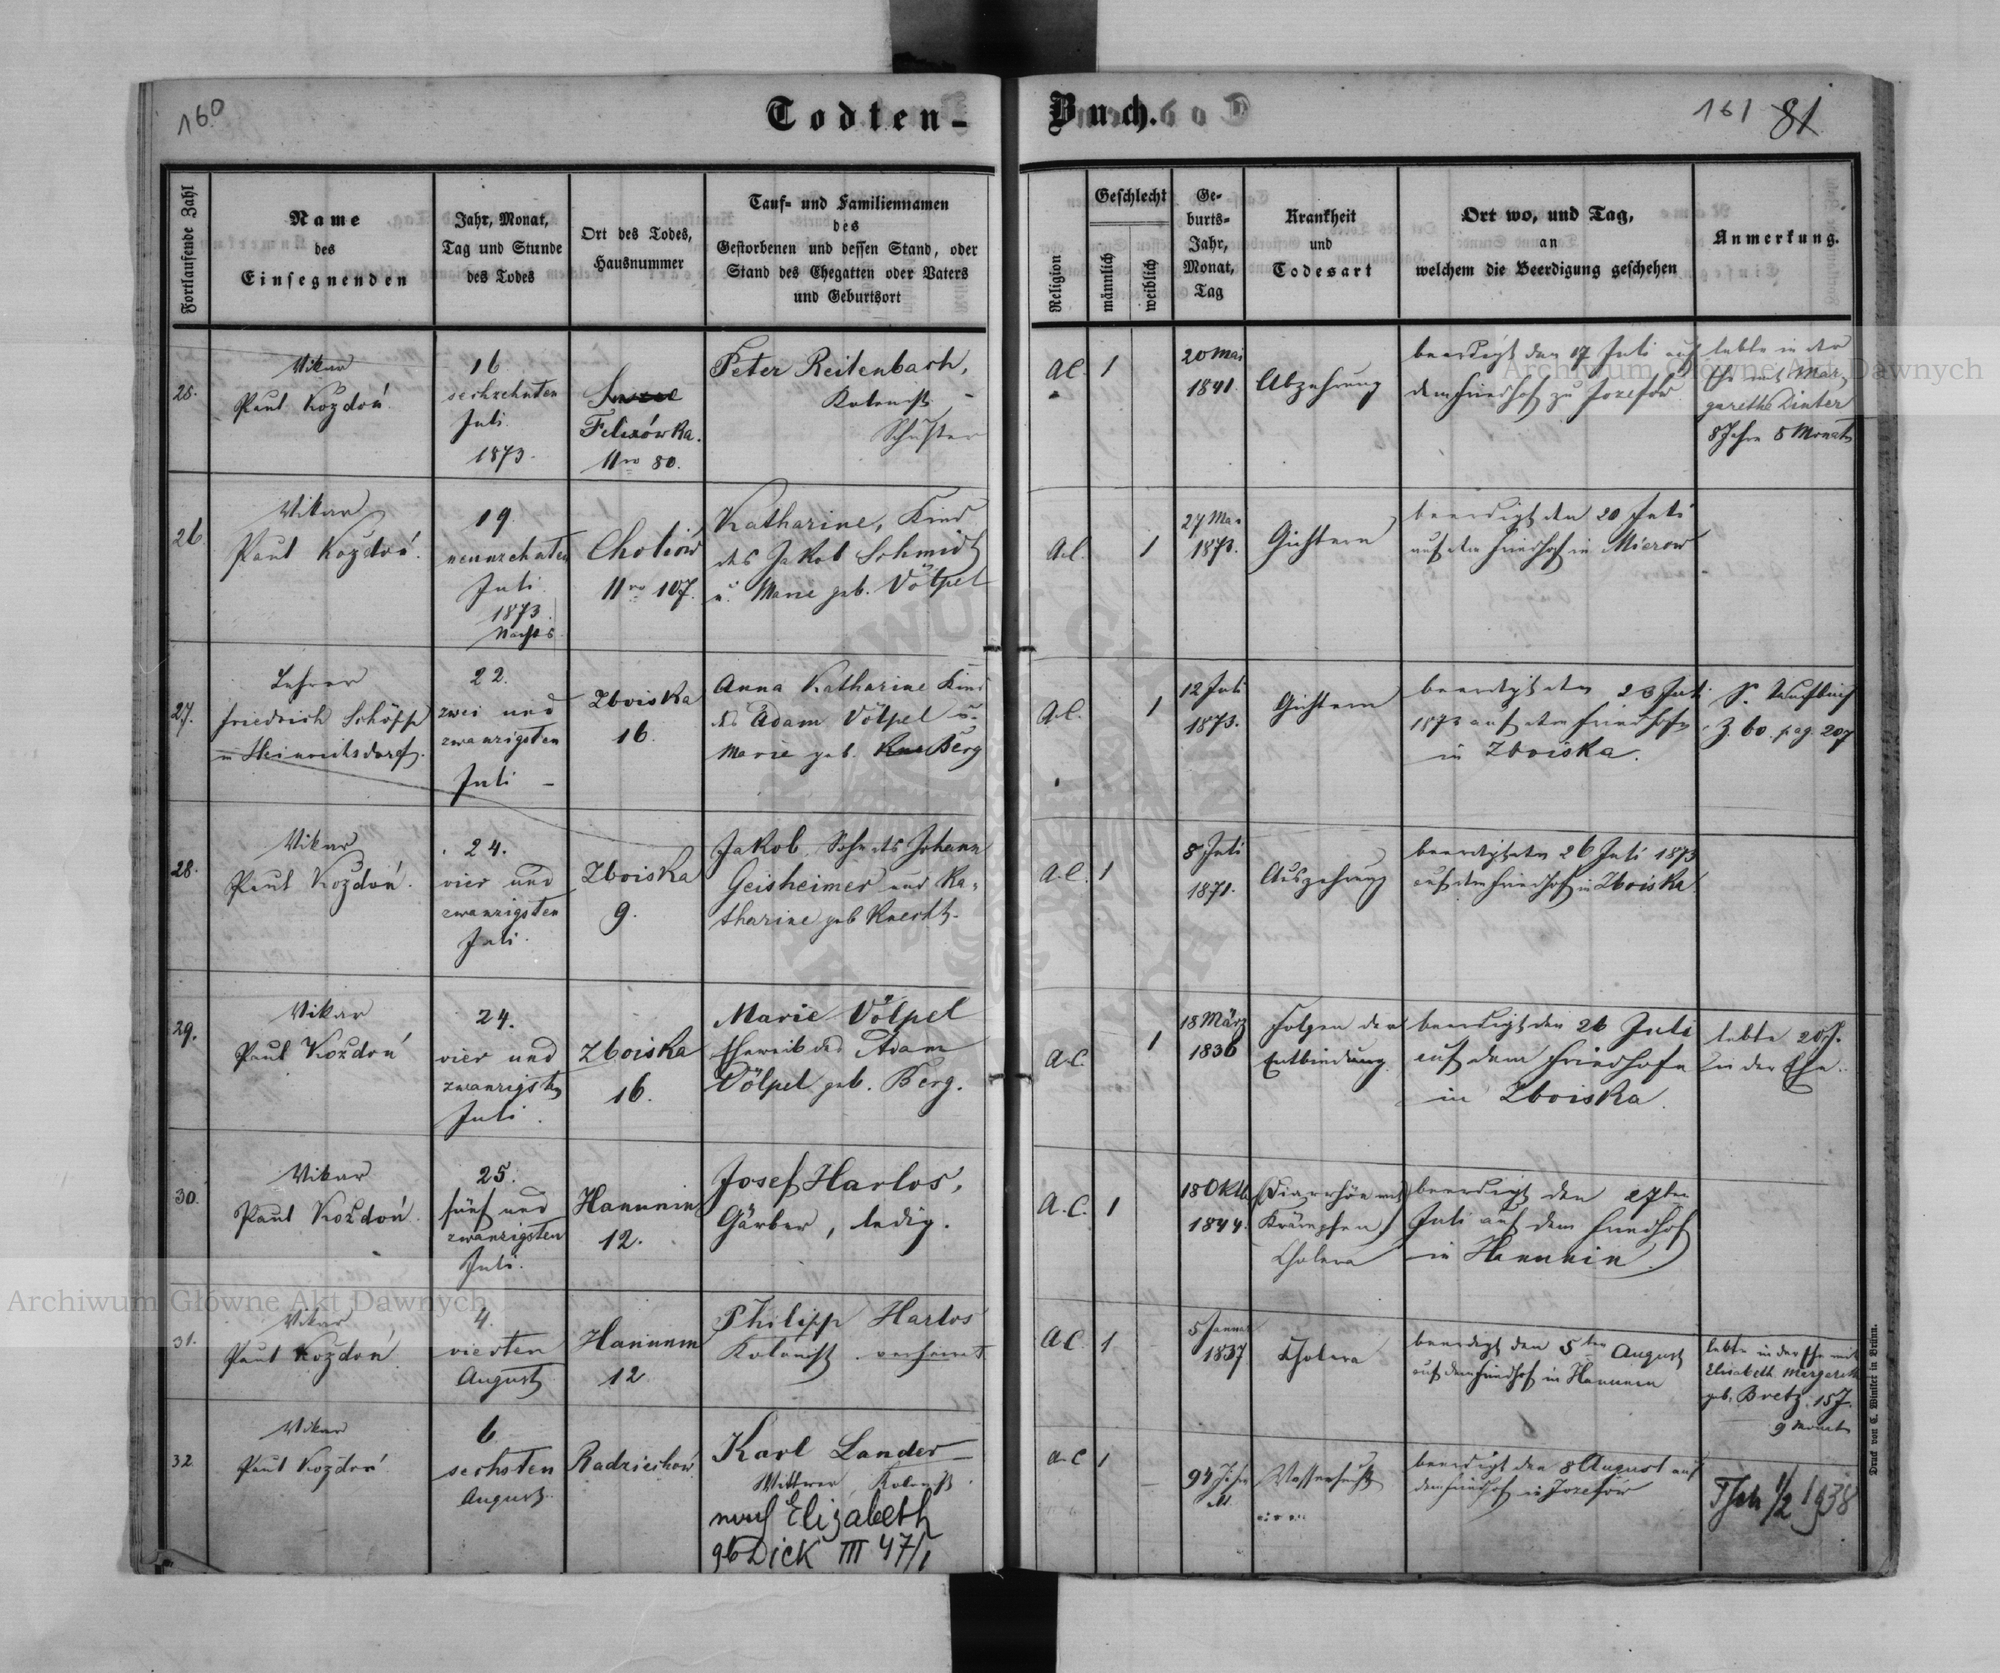 160
Todten-
Buch.
161 81
Fortlaufende Zahl
Name
des
Einsegnenden
Jahr, Monat,
Tag und Stunde
des Todes
Ort des Todes,
Hausnummer
Tauf- und Familiennamen
des
Gestorbenen und dessen Stand, oder
Stand des Ehegatten oder Vaters
und Geburtsort
Religion
Geschlecht
männlich
weiblich
Ge-
burts-
Jahr,
Monat,
Tag
Krankheit
und
Todesart
Ort wo, und Tag,
an
welchem die Beerdigung geschehen
Anmerkung.
25.
Vikar
Paul Kożdoń
16
sechzehnten
Juli
1873.
Felixówka.
Nro 80.
Peter Reitenbach,
Kolonist
Schuster
A.C.
1
20 Mai
1841.
Abzehrung
beerdigt den 17 Juli auf
dem Friedhof zu Jozefow
lebte in der
Ehe mit Mar
garetha Zinter
8 Jahre 8 Monat
26.
Vikar
Paul Kożdoń.
19
neunzehnten
Juli
1873.
Nachts
Chotiów
Nro 107.
Katharine, Kind
des Jakob Schmidt
u. Marie geb. Völpel
A.C.
1
27 Mai
1873.
Gichtern
beerdigt den 20 Juli
auf dem Friedhof in Mierow
27.
Lehrer
Friedrich Schöpp
in Heinrichsdorf.
22.
zwei und
zwanzigsten
Juli -
Zboiska
16.
Anna Katharine Kind
des Adam Völpel u.
Marie geb. Berg
A.C.
1
12 Juli
1873.
Gichtern
beerdigt den 23 Juli
1873 auf dem Friedhofe
in Zboiska.
S. Taufbuch
Z. 60. pag. 207
28.
Vikar
Paul Kożdoń.
24.
vier und
zwanzigsten
Juli.
Zboiska
9.
Jakob, Sohn des Johann
Geisheimer und Ka-
tharine geb Knecht.
A.C.
1
8 Juli
1871.
Auszehrung
beerdigt den 26 Juli 1873
auf dem Friedhof in Zboiska
29.
Vikar
Paul Kożdoń
24.
vier und
zwanzigsten
Juli.
Zboiska
16.
Marie Völpel
Eheweib des Adam
Völpel geb. Berg.
A.C.
1
18 März
1836
Folgen der
Entbindung.
beerdigt den 26 Juli
auf dem Friedhofe
in Zboiska.
lebte 20 J.
in der Ehe.
30.
Vikar
Paul Kożdoń.
25.
fünf und
zwanzigsten
Juli.
Hanunin
12.
Josef Harlos,
Gärber, ledig.
A.C.
1
18 Oktb
1844.
(Diarrhöe mit
Krämpfen)
Cholera
beerdigt den 27ten
Juli auf dem Friedhof
in Hanunin.
31.
Vikar
Paul Kożdoń.
4.
vierten
August
Hanunin
12
Philipp Harlos
Kolonist
A.C.
1
5 Januar
1837
Cholera
beerdigt den 5ten August
auf dem Friedhof in Hanunin
lebte in der Ehe mit
Elisabeth Margareth
geb. Bretz. 15 J.
9 Monate
32
Vikar
Paul Kożdoń
6
sechsten
August.
Radziechów
Karl Lander
Wittwer, Kolonist.
nach Elizabeth
gb Dick III 47/1
A.C
1
94 Jahr
Wassersucht
beerdigt den 8 August auf
dem Friedhof in Jozefow
1/2 1938
Druck von C. Winiker in Brünn.
Archiwum Główne Akt Dawnych
Archiwum Główne Akt Dawnych